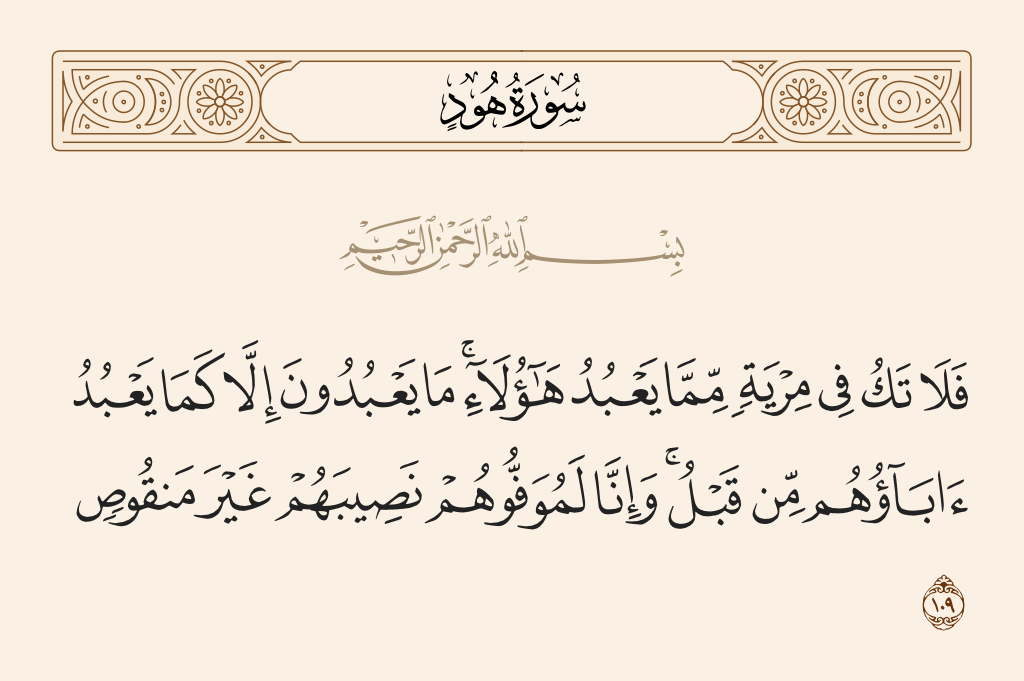 سُورَةُ هُودٍ
بِسْمِ ٱللَّهِ ٱلرَّحْمَٰنِ ٱلرَّحِيمِ
فَلَا تَكُ فِى مِرْيَةٍ مِّمَّا يَعْبُدُ هَـٰٓؤُلَآءِ ۚ مَا يَعْبُدُونَ إِلَّا كَمَا يَعْبُدُ
ءَابَآؤُهُم مِّن قَبْلُ ۚ وَإِنَّا لَمُوَفُّوهُمْ نَصِيبَهُمْ غَيْرَ مَنقُوصٍ
١٠٩